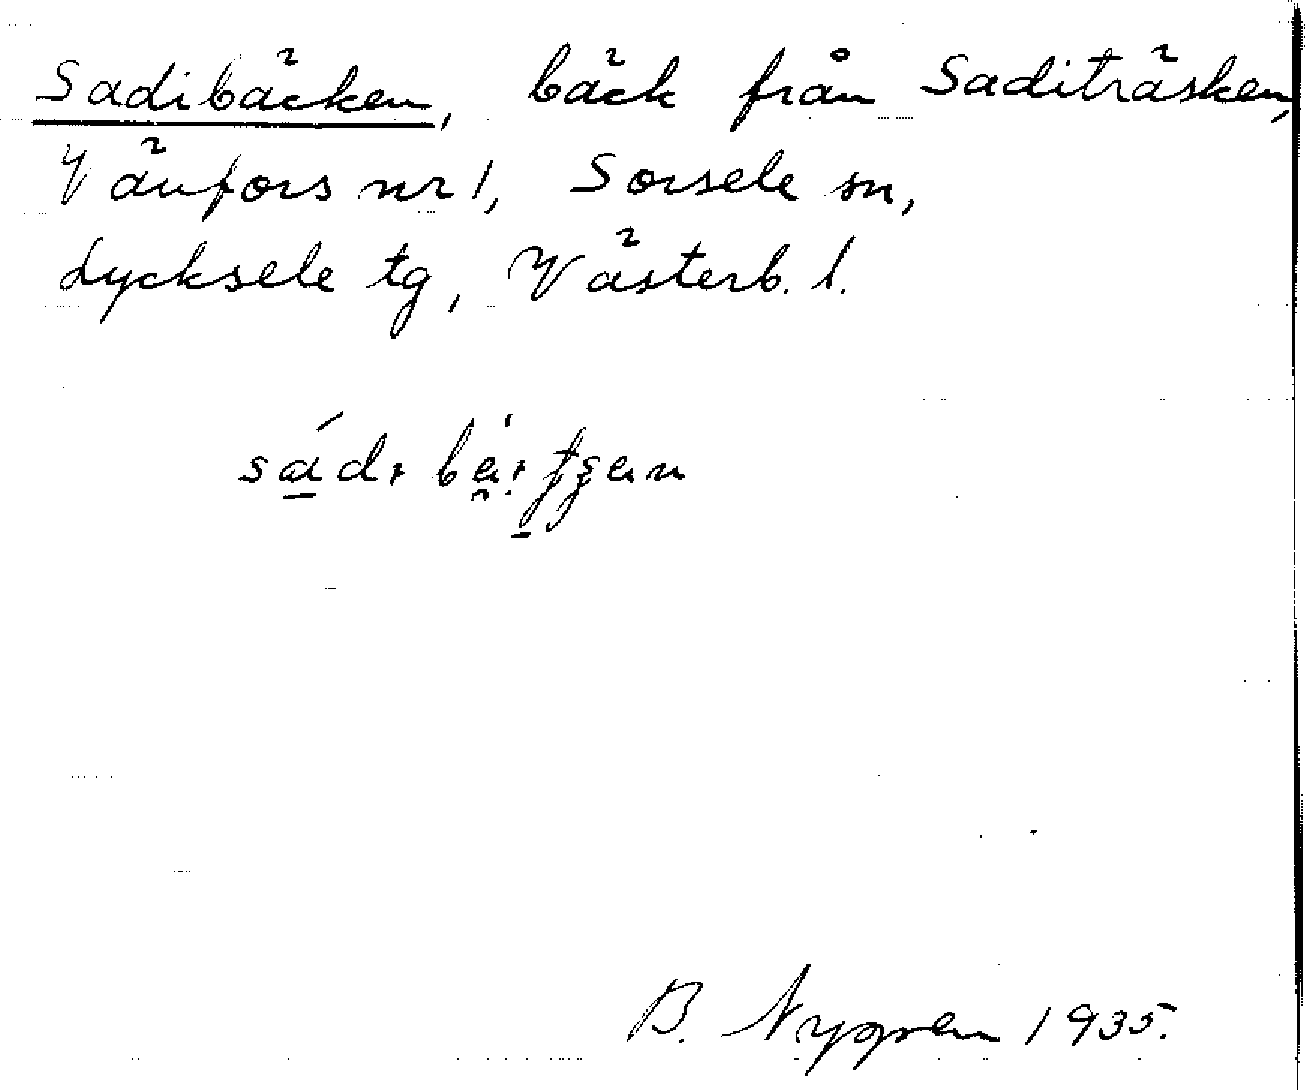 Sadibäcken, bäck från Saditräsken,
Vänfors nr 1, Sorsele sn,
Lycksele tg, Västerb. l.
B. Nygren 1935.